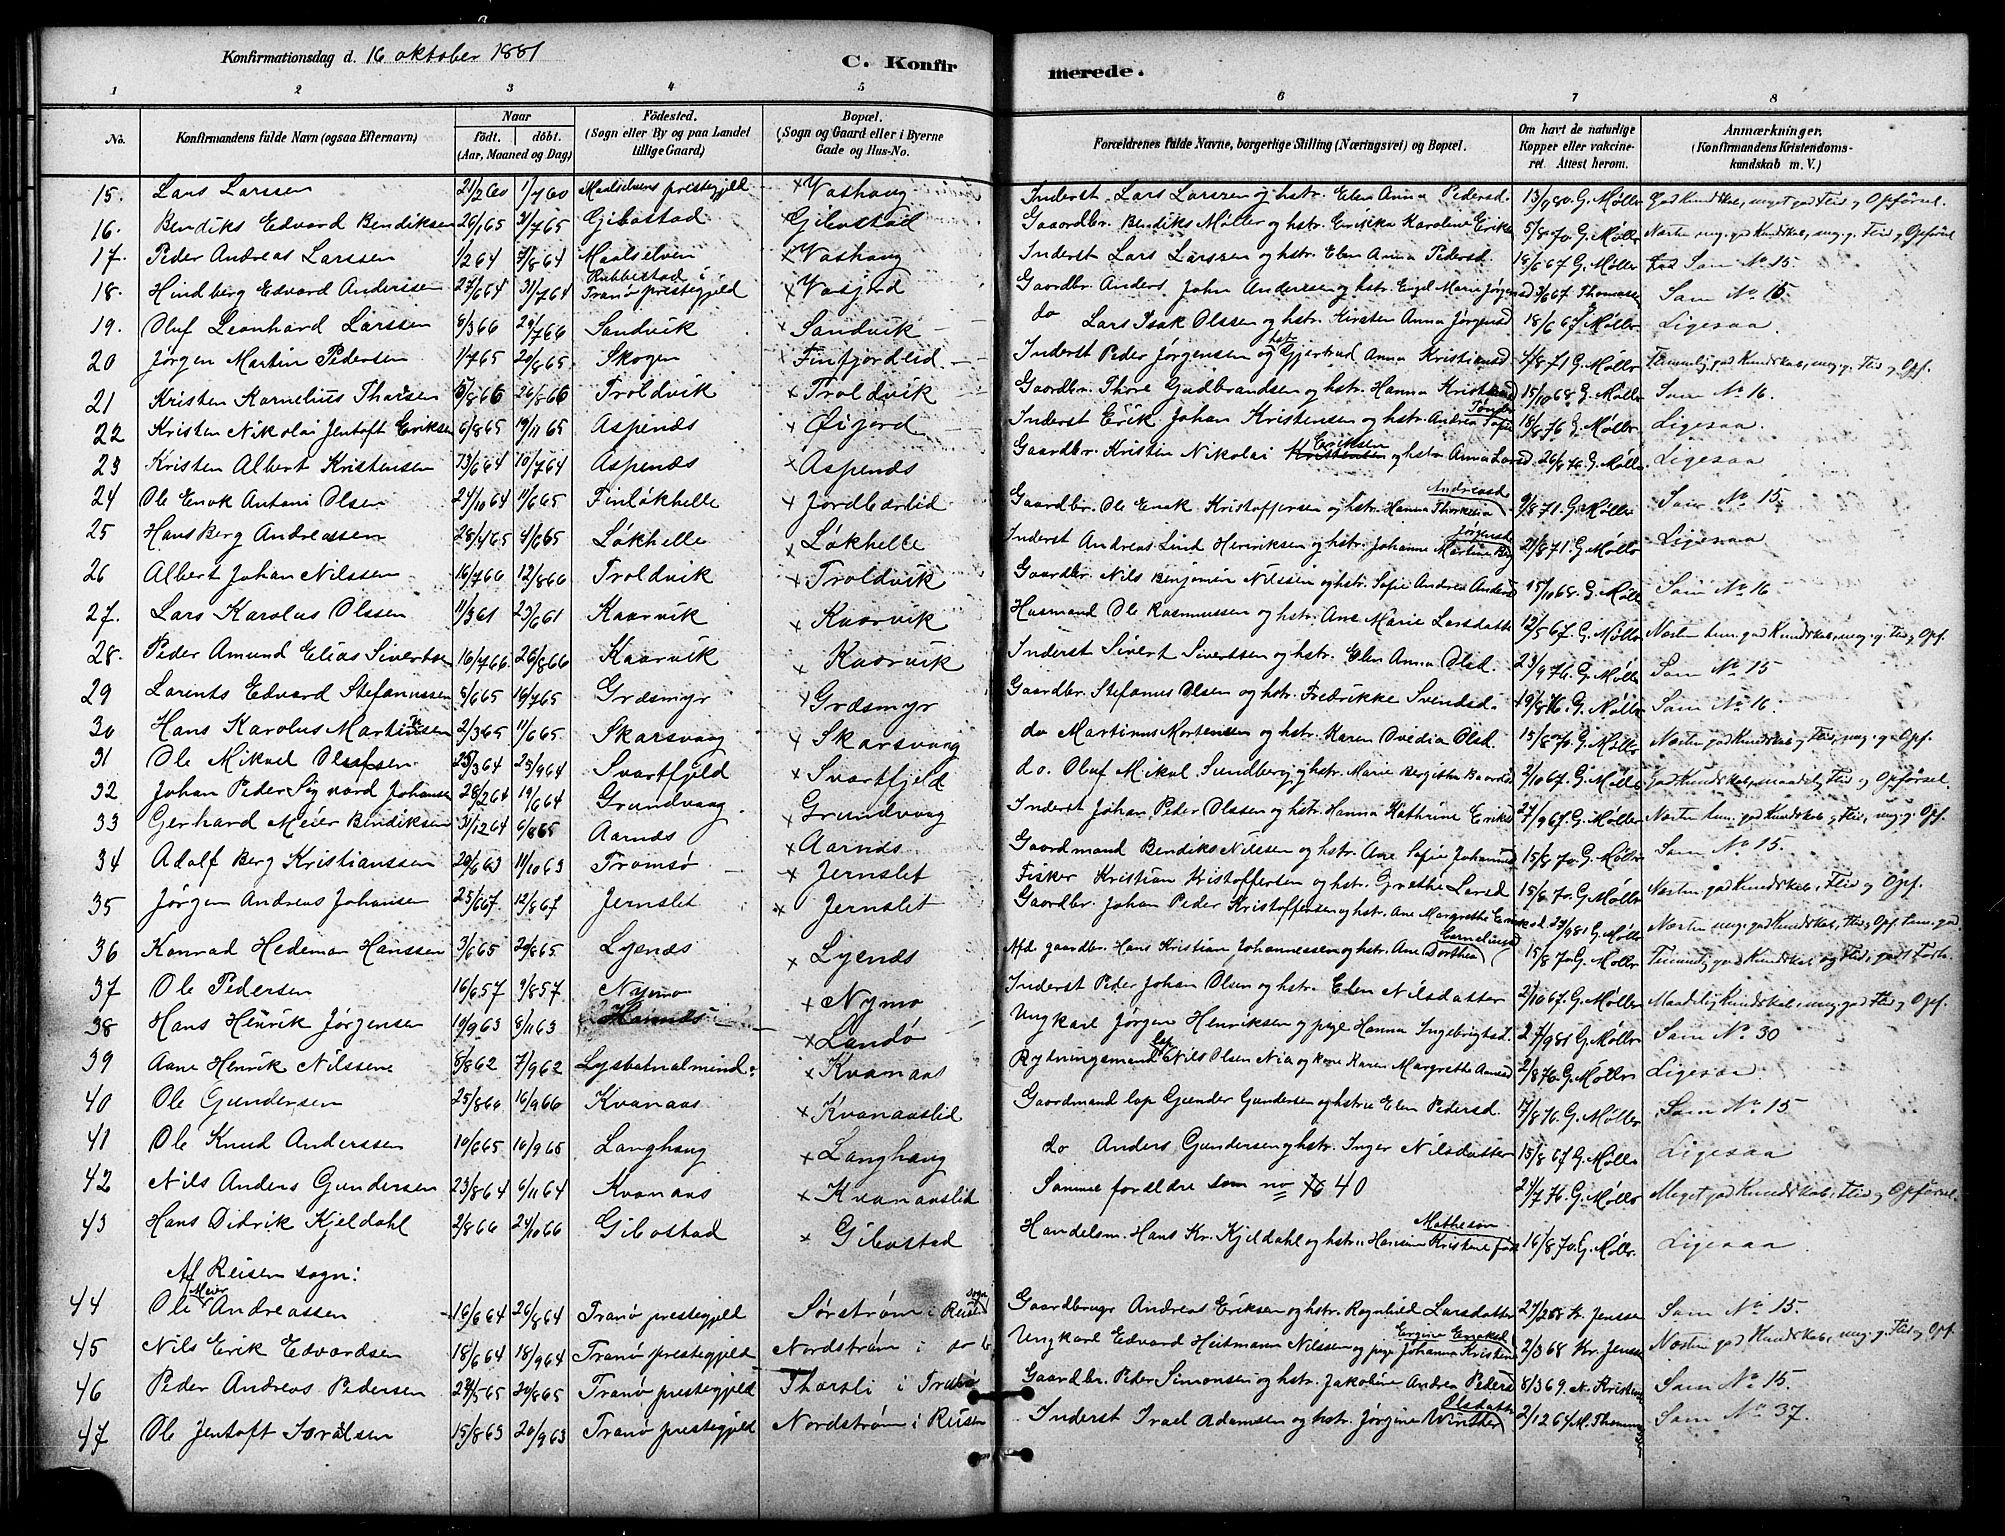 Konfirmationsdag d. 16 oktober 1881
C. Konfirmerede.
1 2 3 4 5 6 7 8
No. Konfirmandens fulde Navn (ogsaa Efternavn) Naar født. døbt. (Aar, Maaned og Dag) Fødested. (Sogn eller By og paa Landet tillige Gaard) Bopæl. (Sogn og Gaard eller i Byerne Gade og Hus-No. Forældrenes fulde Navne, borgerlige Stilling (Næringsvei) og Bopæl. Om havt de naturlige Kopper eller vaccineret. Attest herom. Anmærkninger. (Konfirmandens Kristendomskundskab m. V.)
15. Lars Larssen 21/2 60 1/7 60 Maalselvens prestegjeld × Vashaug Inderst Lars Larssen og hstr. Elen Anna Pedersd. 13/9 80. G. Møller God Kundskab, meget god Flid og Opførsel.
16. Bendiks Edvard Bendiksen 26/1 65 31/7 65 Gibostad × Gibostad Gaardbr. Bendiks Møller og hstr. Erikka Karoline Eriks 5/8 70. G. Møller Næsten meg. god Kundskab, meg. g. Flid og Opførsel
17. Peder Andreas Larssen 1/2 64 7/8 64 Maalselven × Vashaug Inderst Lars Larssen og hstr. Elen Anna Pedersd. 18/6 67 G. Møller Som No. 15.
18. Hindberg Edvard Anderssen 27/6 64 31/7 64 Rubbestad i Tranø prestegjeld × Vasjord Gaardbr. Anders John Anderssen og hstr. Engel Marie Jørgensd 3/6 67. Thomassen Som No 15.
19. Oluf Leonhard Larssen 8/3 66 29/7 66 Sandvik × Sandvik do Lars Isak Olssen og hstr. Kirsten Anna Jørgensd 18/6 67 G. Møller Ligesaa.
20 Jørgen Martin Pedersen 1/7 65 20/8 65 Skogen × Finfjordeid Inderst Peder Jørgensen og hstr Gjertrud Anna Kristiansd 4/8 71 G. Møller Temmelig god Kundskab, meg. g. Flid og Opf.
21 Kristen Kornelius Thorsen 5/8 66 26/8 66 Troldvik × Troldvik Gaardbr. Thore Gudbrandsen og hstr. Hanna Kristensd 15/10 68. G. Møller Som No 16.
22 Kristen Nikolai Jentoft Eriksen 6/8 65 19/11 65 Aspenes × Øijord Inderst Erik Johan Kristensen og hstr. Andrea Sofie 18/8 76 G. Møller Ligesaa.
23 Kristen Albert Kristensen 13/6 64 10/7 64 Aspenes × Aspenes Gaardbr. Kristen Nikolai Eriksen og hstr. Anna Larsd. 26/8 76. G. Møller Ligesaa
24 Ole Enok Antoni Olsen 24/10 64 11/6 65 Finløkhelle × Jordbærlid Gaardbr. Ole Enok Kristoffersen og hstr. Hanna Thorkelia Andreasd 9/8 71. G. Møller Som No. 15.
25 Hans Berg Andreassen 28/4 65 4/6 65 Løkhelle × Løkhelle Inderst Andreas Lind Henriksen og hstr. Johanne Martine Berg Jørgensd 21/8 71. G. Møller Ligesaa
26 Albert Johan Nilssen 16/7 66 12/8 66 Troldvik × Troldvik Gaardbr. Nils Benjamin Nilssen og hstr. Sofie Andrea Andersd 15/10 68. G. Møller Som No 16.
27. Lars Karolus Olssen 11/3 61 23/6 61 Kaarvik × Kaarvik Husmand Ole Rasmussen og hstr. Ane Marie Larsdatter 12/5 67. G. Møller Næsten tem. god Kundskab, meg. g. Flid og Opf.
28. Peder Amund Elias Sivertsen 16/7 66. 26/8 66 Kaarvik × Kaarvik Inderst Sivert Sivertsen og hstr. Elen Anna Olsd. 23/9 76. G. Møller Som No. 15
29 Lorents Edvard Stefanussen 8/6 65 16/7 65 Græsmyr × Græsmyr Gaardbr. Stefanus Olsen og hstr. Fredrikke Svendsd. 19/8 76. G. Møller Som No 16.
30 Hans Karolus Martinussen 2/3 65 11/6 65. Skarsvaag × Skarsvaag do Martinus Mortenssen og hstr. Karen Ovedia Olsd. 15/8 70. G. Møller Næsten god Kundskab og Flid, meg. g. Opf.
31 Ole Mikael Olufsen 23/3 64 25/9 64 Svartfjeld × Svartfjeld do. Oluf Mikal Sundberg og hstr. Marie Bergitta Baardsd 2/10 67. G. Møller God Kundskab, maadelig Flid og Opførsel.
32 Johan Peder Sigvard Johansen 28/2 64 19/6 64 Grundvaag × Grundvaag Inderst Johan Peder Olssen og hstr. Hanna Kathrine Eriksd 27/9 67. G. Møller Næsten tem. god Kundskab og Flid, meg. g. Opf.
33 Gerhard Meier Bendiksen 31/12 64 6/8 65 Aarnes × Aarnes. Gaardmand Bendiks Nilssen og hstr. Ane Sofie Johannesd 15/8 70. G. Møller Som No. 15.
34 Adolf Berg Kristianssen 20/6 63 11/10 63 Tromsø × Jernslet Fisker Kristian Kristoffersen og hstr. Grethe Larsd. 15/6 70. G. Møller Næsten god Kundskab, Flid og Opf.
35 Jørgen Andreas Johansen 25/6 67 12/8 67 Jernslet × Jernslet Gaardbr. Johan Peder Kristoffersen og hstr. Ane Margrethe Enoksd. 27/9 81 G. Møller Næsten meg. god Kundskab, Flid og Opf. tem. god
36 Konrad Hedeman Hanssen 3/6 65 20/8 65. Lysnes × Lysnes Afd. gaardbr. Hans Kristian Johannessen og hstr. Ane Dorthea Corneliusd 15/8 70. G. Møller Temmelig god Kundskab og Flid, godt Forh.
37 Ole Pedersen 16/6 57 9/8 57. Nymo × Nymo Inderst Peder Johan Olsen og hstr. Elen Nilsdatter 2/10 67. G. Møller Maadelig Kundskab, meg. god Flid og Opf.
38 Hans Henrik Jørgensen 19/9 63 8/11 63 × Landø Ungkarl Jørgen Henriksen og pige Hanna Ingebrigtsd. 27/9 81 G. Møller Som No. 30
39 Aane Henrik Nilssen 8/8 62 7/9 62 Lysbotnalmind. × Kvanaas Rydningsmand lap Nils Olsen Nia og kone Karen Margrethe Aanesd 2/8 76. G. Møller Ligesaa
40 Ole Gundersen 25/8 66 16/9 66 Kvanaas × Kvanaaslid Gaardmand lap Gunder Gundersen og hstru Elen Pedersd. 17/8 76. G. Møller Som No 15
41 Ole Knud Anderssen 10/6 65 10/9 65 Langhaug × Langhaug do Anders Gundersen og hstr. Inger Nilsdatter 15/8 67 G. Møller Ligesaa
42 Nils Anders Gundersen 23/8 64 6/11 64 Kvanaas × Kvanaaslid Samme forældre som no 40 21/7 76. G. Møller Meget god Kundskab, Flid og Opførsel.
43 Hans Didrik Kjeldahl 2/8 66 24/10 66 Gibostad × Gibostad Handelsm. Hans Kr. Kjeldahl og hstr. Hansine Kristine født Mathesen 16/8 70. G. Møller. Ligesaa.
Af Reisen sogn:
44 Ole Meier Andreassen 16/6 64 26/8 64 Tranø prestegjeld Sørstrøm i Reisen sogn Gaardbruger Andreas Eriksen og hstr. Ragnhild Larsdatter 27/2 68 Kr. Jenssen Som No. 15.
45 Nils Erik Edvardsen 18/6 64 18/9 64 Tranø prestegjeld Nordstrøm i do Ungkarl Edvard Heitmann Nilssen og pige Johanna Kristense 2/3 68 Kr. Jenssen Næsten god Kundskab, meg. g. Flid og Opf.
46 Peder Andreas Pedersen 24/5 65 20/8 65 Tranø prestegjeld Thorsli i Tranø Gaardbr. Peder Simonsen og hstr. Jakobine Andrea Pedersd 8/3 69. N. Kristense Som No 15.
47 Ole Jentoft Isralsen 15/8 63 20/9 63 Tranø prestegjeld Nordstrøm i Reisen Inderst Israel Adamsen og hstr. Jørgine Winther Olsdatter 2/12 64 M. Thomassen Som No 37.